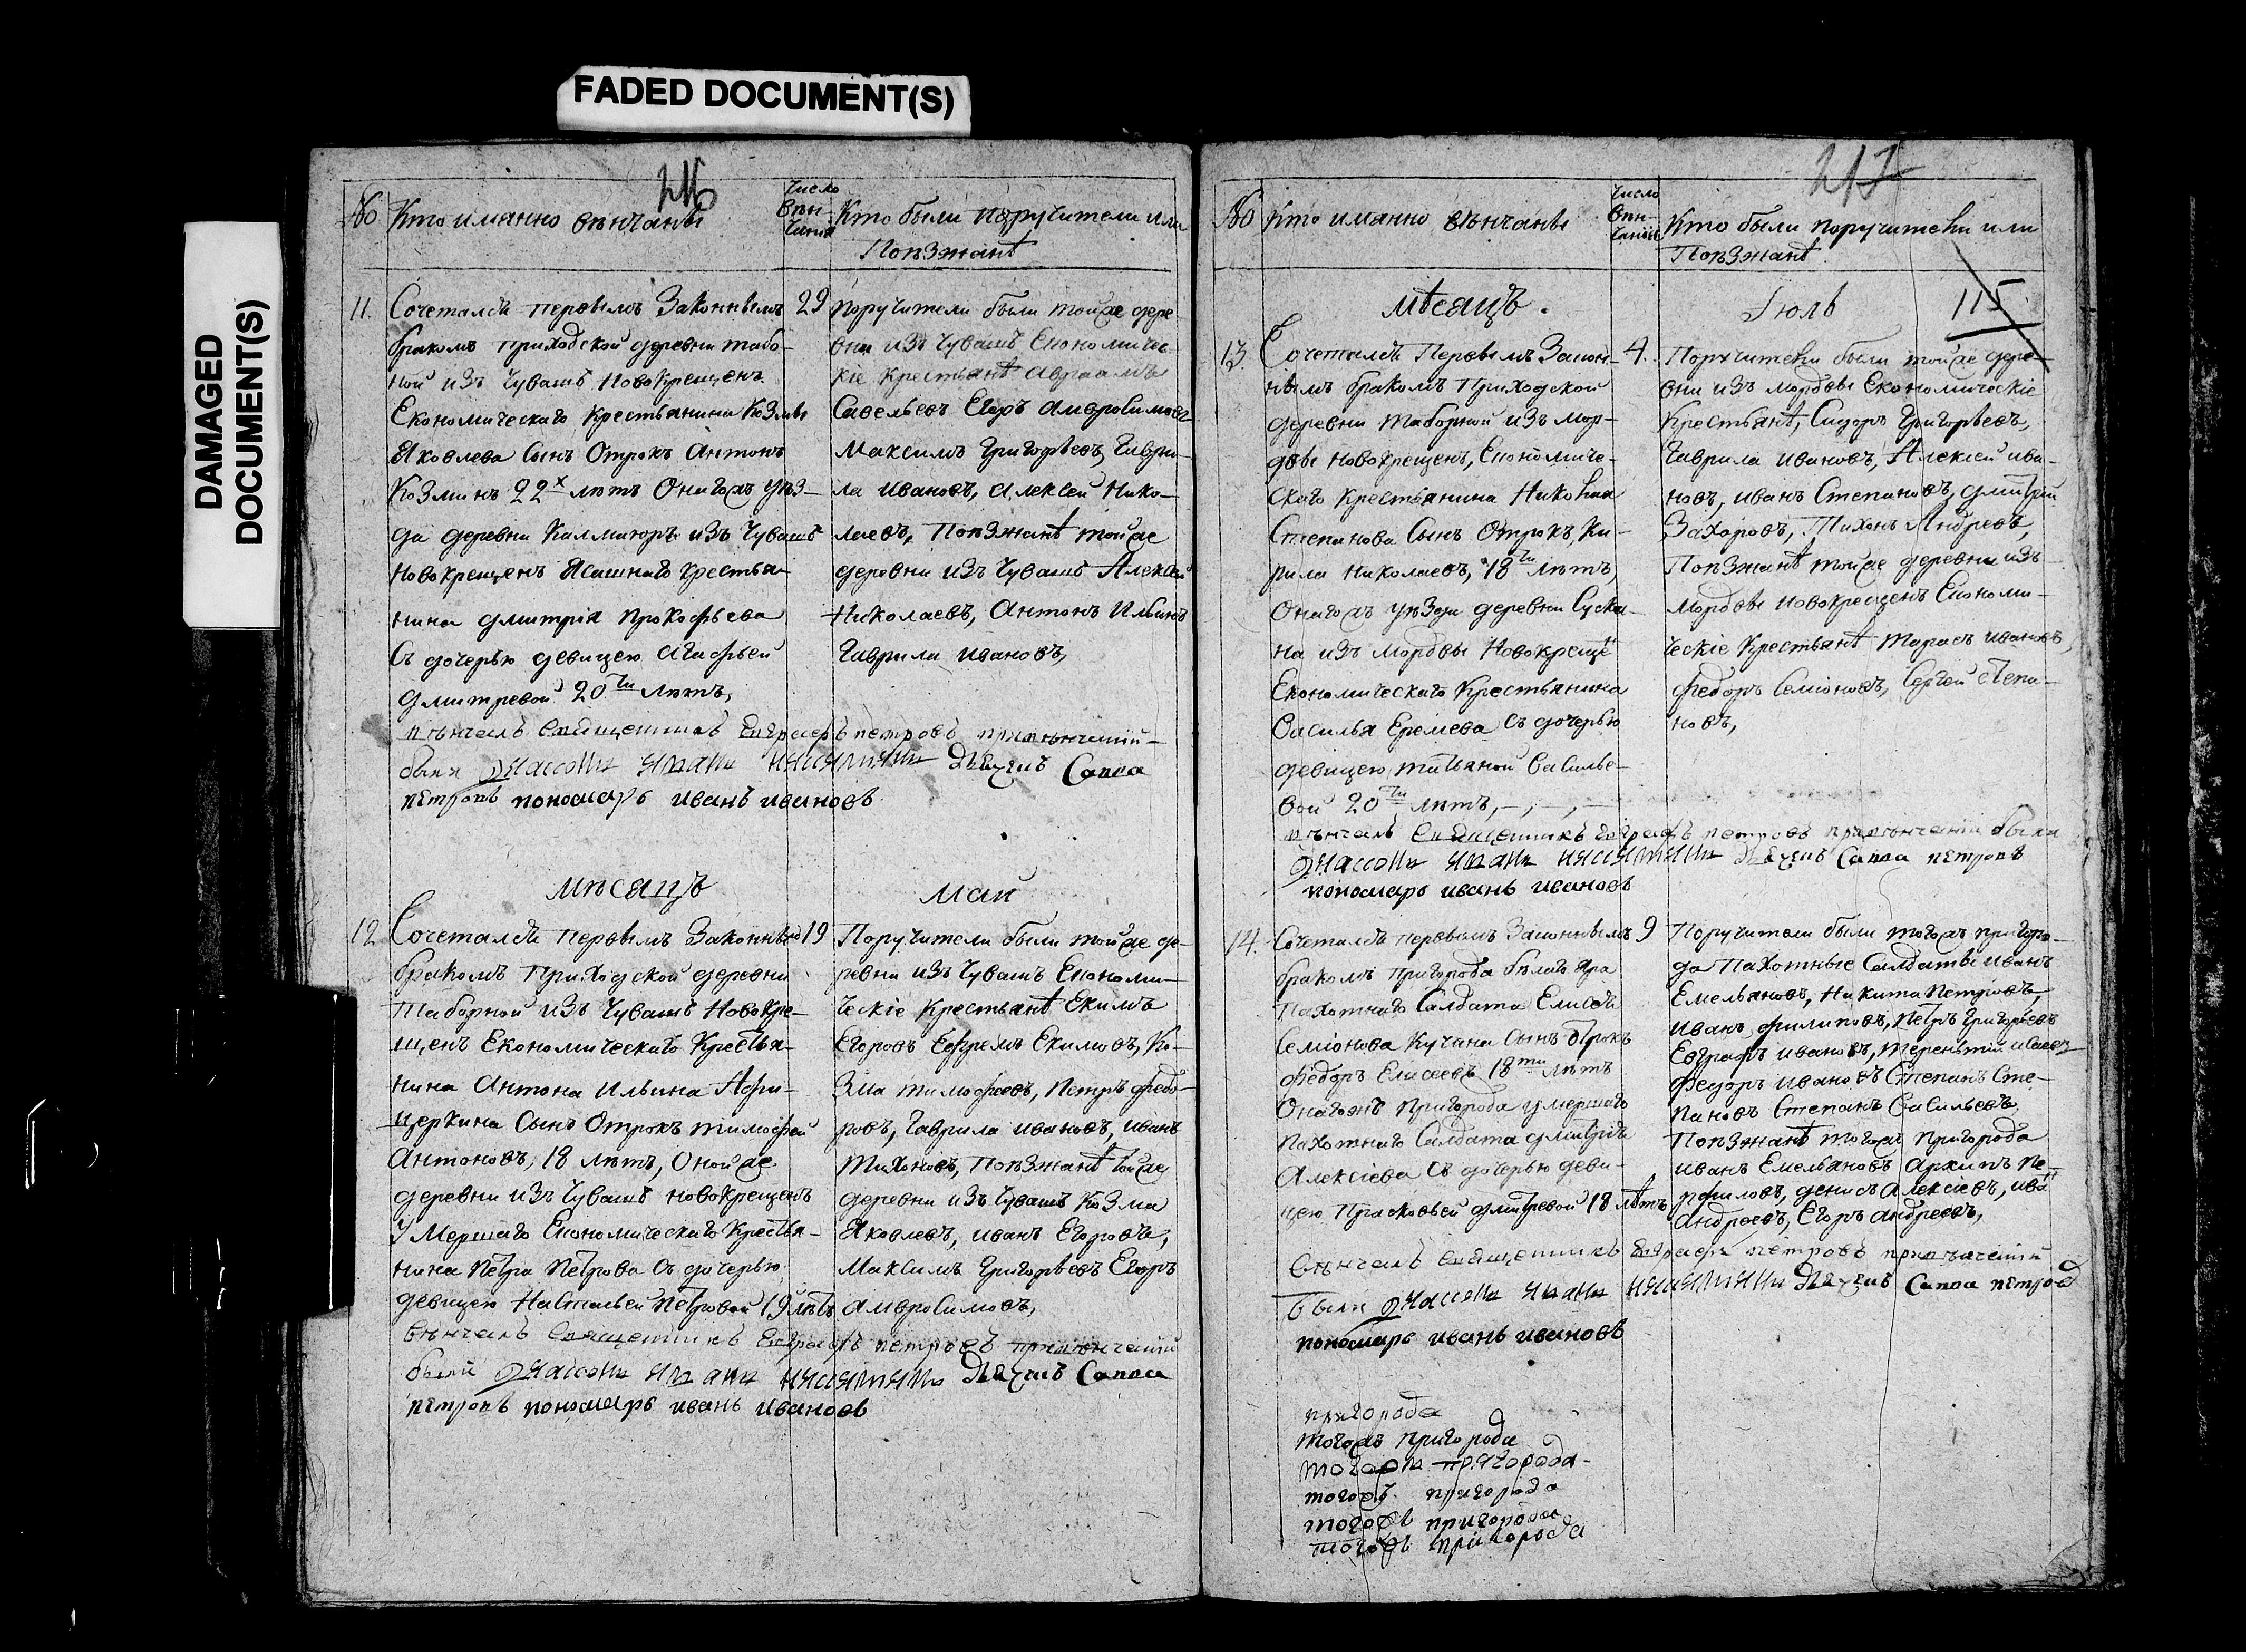 FADED DOCUMENT(S)
DAMAGED
DOCUMENT(S)
216
№ Кто имянно венчаны
Число
вѣн-
чания
Кто были поручители или
Поѣзжанѣ
11. Сочетался первымъ Законнымъ
бракомъ приходской деревни табо-
ной изъ Чувашъ Новокрещенъ
Економическаго крестьянина Козмы
Яковлева Сынъ Отрокъ Антонъ
Козминъ 22х лѣтъ Онагожъ уѣз-
да деревни Калмаюръ изъ Чувашъ
новокрещенъ Ясашнаго крестья-
нина дмитрія прокофьева
Съ дочерью девицею Агафьей
дмитревой 20ти лѣтъ,
29
поручители были тойже дере
вни изъ Чувашъ Економичес
кіе крестьянѣ авраамъ
Савельевъ Егоръ амвросимовъ
Максимъ Григорьевъ, Гаври-
ла ивановъ, алексей Нико-
лаевъ, Поѣзжанѣ тойже
деревни изъ Чувашъ Алексей
Николаевъ, антонъ Ильинъ
Гаврила ивановъ,
вѣнчалъ священникъ Евграфъ петровъ привѣнчаніи
были дьячокъ дьячекъ Савва
петровъ пономарь иванъ ивановъ
мѣсяцъ май
12 Сочетался первымъ Законнымъ
бракомъ Приходской деревни
Таборной изъ Чувашъ Новокре-
щенъ Економическаго Крестья-
нина Антона Ильина
Сынъ Отрокъ тимофей
антоновъ, 18 лѣтъ, Онойже
деревни изъ Чувашъ новокрещенъ
Умершаго Економическаго Крестья-
нина Петра Петрова Съ дочерью
девицею Настасьей Петровой 19 лѣтъ
19
Поручители были тойже де-
ревни изъ Чувашъ Економи-
ческіе Крестьянѣ Екимъ
Егоровъ Ефремъ Екимовъ, Ко-
зма тимофеевъ, Петръ федо-
ровъ, Гаврила ивановъ, иванъ
Тихоновъ, Поѣзжанѣ тойже
деревни изъ Чувашъ Козма
Яковлевъ, иванъ Егоровъ,
Максимъ Григорьевъ Егоръ
амвросимовъ,
Вѣнчалъ Священникъ Евграфъ петровъ привѣнчаніи
были дьячекъ Савва
петровъ пономарь иванъ ивановъ
217
№ Кто имянно вѣнчаны
Число
вѣн-
чания
Кто были поручители или
Поѣзжанѣ
мѣсяцъ. Іюль
115
13. Сочетался Первымъ Закон-
нымъ бракомъ Приходской
деревни таборной изъ мор-
двы новокрещенъ, Економиче-
скаго крестьянина Николая
Степанова Сынъ Отрокъ, Ки-
рила николаевъ, 18ти лѣтъ,
Онагожъ уѣзда деревни Суска
на изъ мордвы Новокреще
Економическаго Крестьянина
Василья Еремева Съ дочерью
девицею, татьяной василье-
вой 20ти лѣтъ,
4.
Поручители были тойже дере-
вни изъ мордвы Економическіе
Крестьянѣ, Сидоръ Григорьевъ,
Гаврила ивановъ, Алексей ива-
новъ, иванъ Степановъ, дмитрій
Захоровъ, Тихонъ Андревъ,
Поѣзжанѣ тойже деревни изъ
мордвы новокрещенъ Економи-
ческіе Крестьянѣ тарасъ ивановъ,
федоръ Семіоновъ, Сергей степа-
новъ,
вѣнчалъ священникъ Евграфъ петровъ привѣнчаніи были
дьячекъ Савва петровъ
пономарь иванъ ивановъ
14. Сочетался первымъ Законнымъ
бракомъ пригорода бѣлаго яра
пахотнаго Салдата Елисея
Семіонова Кучана Сынъ Отрокъ
федоръ Елисеевъ 18ти лѣтъ
Онагожъ Пригорода умершаго
пахотнаго Салдата дмитрія
Алексіева съ дочерью деви-
цею Прасковьей дмитревой 18 лѣтъ
9
Поручители были тогожъ пригоро-
да Пахотные Салдаты иванъ
Емельяновъ, Никита петровъ,
иванъ филиповъ, петръ григорьевъ
Евграфъ ивановъ, терентій исаевъ
Федоръ ивановъ Степанъ Сте-
пановъ Степанъ Васильевъ,
Поѣзжанѣ тогожъ Пригорода
иванъ Емельяновъ архипъ Пе-
рфиловъ, денисъ алексіевъ, ива
андреевъ, Егоръ андреевъ,
Вѣнчалъ священникъ Евграфъ петровъ привѣнчаніи
были дьячекъ Савва петровъ
пономарь иванъ ивановъ
пригорода
тогожъ пригорода
тогожъ пригорода
тогожъ пригорода
тогожъ пригорода
тогожъ пригорода